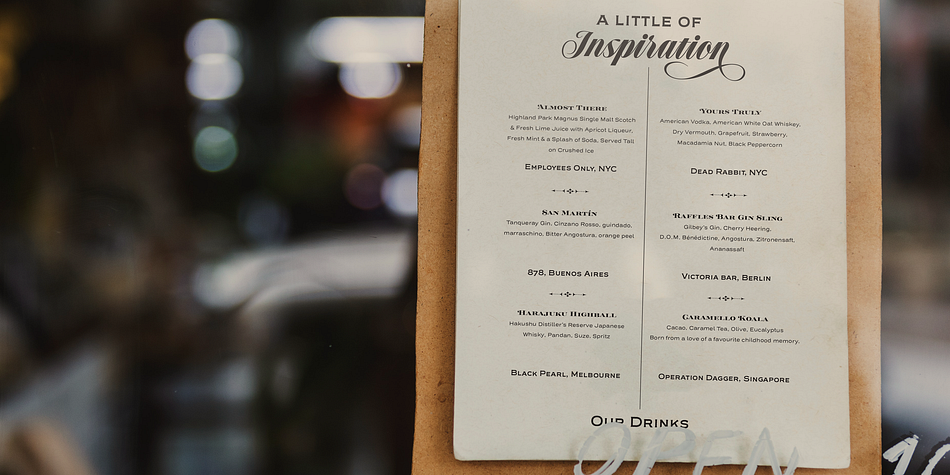 A LITTLE OF
Inspiration
Almost There
Highland Park Magnus Single Malt Scotch
& Fresh Lime Juice with Apricot Liqueur,
Fresh Mint & a Splash of Soda, Served Tall
on Crushed Ice
Employees Only, NYC
San Martín
Tanqueray Gin, Cinzano Rosso, guindado,
marraschino, Bitter Angostura, orange peel
878, Buenos Aires
Harajuku Highball
Hakushu Distiller's Reserve Japanese
Whisky, Pandan, Suze, Spritz
Black Pearl, Melbourne
Yours Truly
American Vodka, American White Oat Whiskey,
Dry Vermouth, Grapefruit, Strawberry,
Macadamia Nut, Black Peppercorn
Dead Rabbit, NYC
Raffles Bar Gin Sling
Gilbey's Gin, Cherry Heering,
D.O.M. Bénédictine, Angostura, Zitronensaft,
Ananassaft
Victoria bar, Berlin
Caramello Koala
Cacao, Caramel Tea, Olive, Eucalyptus
Born from a love of a favourite childhood memory.
Operation Dagger, Singapore
Our Drinks
OPEN